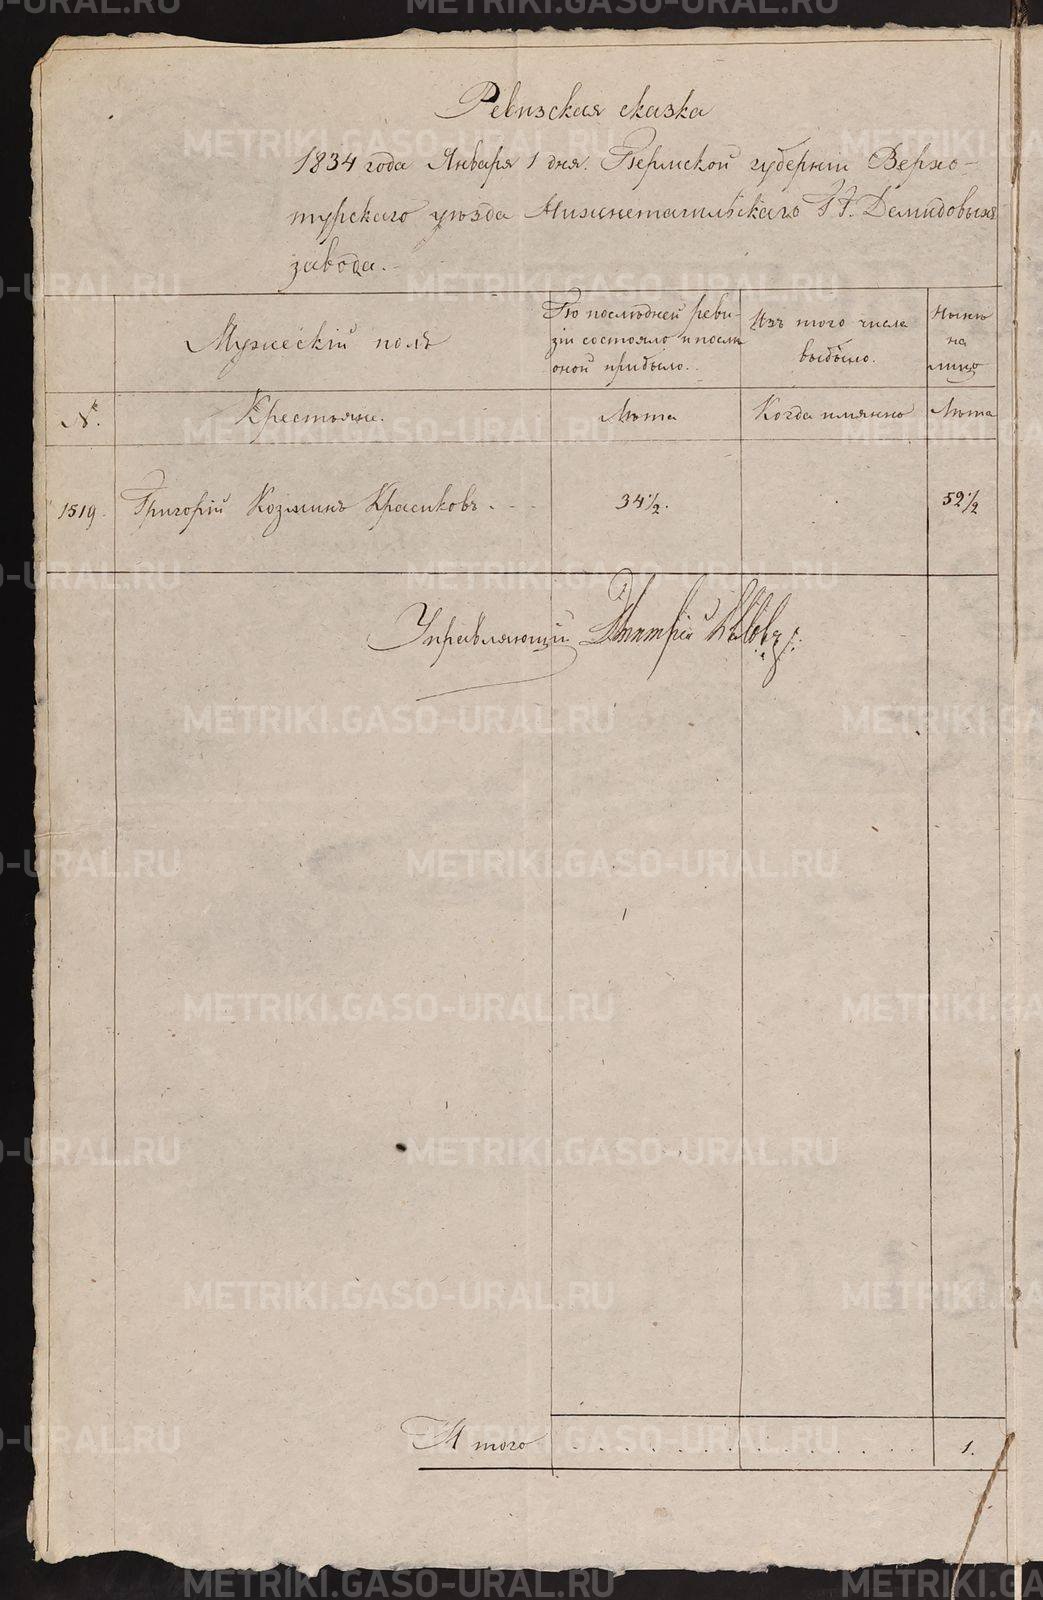 Ревизская сказка
1834 года Января 1 дня. Пермской губернии Верхо-
турского уезда Нижнетагильскаго ГГ. Демидовыхъ
завода.
Мужескій полъ
По последней реви-
зіи состояло и после
оной прибыло.
Изъ того числа
выбыло.
Ныне
на
лицо
№.
Крестьяне.
Лета
Когда имянно
Лета
1519.
Григорій Козминъ Красиковъ.
34 1/2.
52 1/2
Управляющій Дмитрій Беловъ
Итого
1.
METRIKI.GASO-URAL.RU